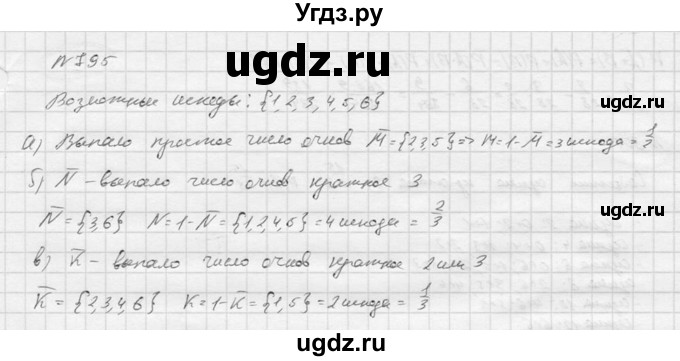 Угдз.ру
N 795
gudz.ru
Возможные исходы: {1,2,3,4,5,6}
а) Выпало простое число очков M̅={2,3,5}=> M=1-M̅=3 исхода = 1/2
б) N̅ - выпало число очков кратное 3
N̅ = {3,6} N=1-N̅ = {1,2,4,5}=4 исхода = 2/3
в) K̅ - выпало число очков кратное 2 или 3
K̅ = {2,3,4,6} K=1-K̅ = {1,5}=2 исхода = 1/3
gudz.ru
Угдз.ру